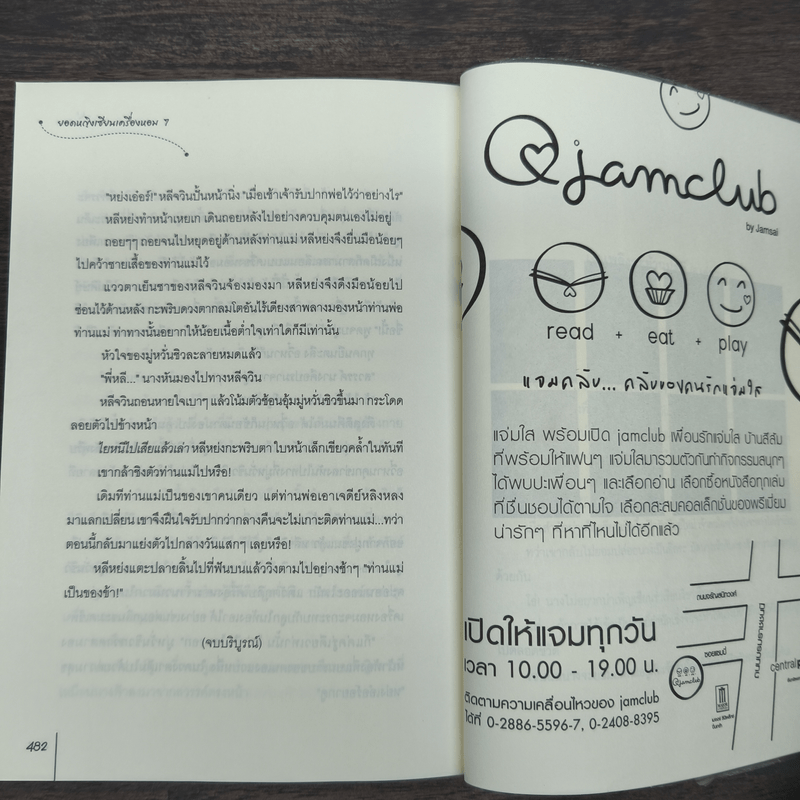 ยอดหญิงเซียนเครื่องหอม 7
"หย่งเอ๋อร์!" หลีจวินปั้นหน้านิ่ง "เมื่อเช้าเจ้ารับปากพ่อไว้ว่าอย่างไร"
หลีหย่งทำหน้าเหยเก เดินถอยหลังไปอย่างควบคุมตนเองไม่อยู่
ถอยๆๆ ถอยจนไปหยุดอยู่ด้านหลังท่านแม่ หลีหย่งจึงยื่นมือน้อยๆ
ไปคว้าชายเสื้อของท่านแม่ไว้
แววตาเย็นชาของหลีจวินจ้องมองมา หลีหย่งจึงดึงมือน้อยไป
ซ่อนไว้ด้านหลัง กะพริบดวงตากลมโตอันไร้เดียงสาพลางมองหน้าท่านพ่อ
ท่านแม่ ท่าทางนั้นอยากให้น้อยเนื้อต่ำใจเท่าใดก็มีเท่านั้น
หัวใจของมู่หวั่นชิวละลายหมดแล้ว
"พี่หลี..." นางหันมองไปทางหลีจวิน
หลีจวินถอนหายใจเบาๆ แล้วโน้มตัวช้อนอุ้มมู่หวั่นชิวขึ้นมา กระโดด
ลอยตัวไปข้างหน้า
ไยหนีไปเสียแล้วเล่า หลีหย่งกะพริบตา ใบหน้าเล็กเขียวคล้ำในทันที
เขากล้าชิงตัวท่านแม่ไปหรือ!
เดิมทีท่านแม่เป็นของเขาคนเดียว แต่ท่านพ่อเอาเจดีย์หลิงหลง
มาแลกเปลี่ยน เขาจึงฝืนใจรับปากว่ากลางคืนจะไม่เกาะติดท่านแม่...ทว่า
ตอนนี้กลับมาแย่งตัวไปกลางวันแสกๆ เลยหรือ!
หลีหย่งแตะปลายลิ้นไปที่ฟันบนแล้ววิ่งตามไปอย่างช้าๆ "ท่านแม่
เป็นของข้า!"
(จบบริบูรณ์)
482
@jamclub
by Jamsai
read + eat + play
แจมคลับ... คลับของคนรักแจ่มใส
แจ่มใส พร้อมเปิด jamclub เพื่อนรักแจ่มใส บ้านสีส้ม
ที่พร้อมให้แฟนๆ แจ่มใสมารวมตัวกันทำกิจกรรมสนุกๆ
ได้พบปะเพื่อนๆ และเลือกอ่าน เลือกซื้อหนังสือทุกเล่ม
ที่ชื่นชอบได้ตามใจ เลือกสะสมคอลเล็กชั่นของพรีเมี่ยม
น่ารักๆ ที่หาที่ไหนไม่ได้อีกแล้ว
เปิดให้แจมทุกวัน
เวลา 10.00 - 19.00 น.
ติดตามความเคลื่อนไหวของ jamclub
ได้ที่ 0-2886-5596-7, 0-2408-8395
ถนนจรัญสนิทวงศ์
ซอยแฮปปี้
@jamclub
central